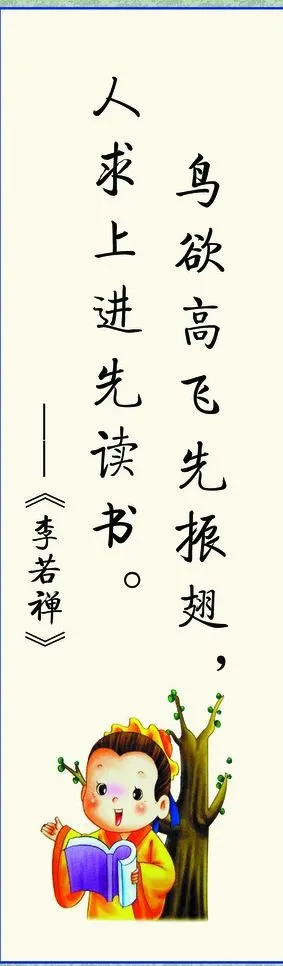 鸟欲高飞先振翅，
人求上进先读书。
——《李若禅》